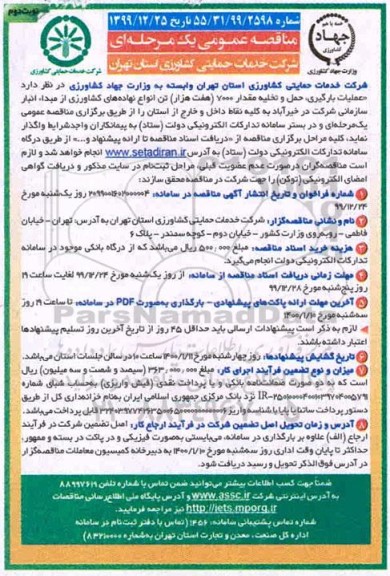 نوبت دوم
شماره ۵۵/۳۱/۹۹/۲۵۹۸ تاریخ ۱۳۹۹/۱۲/۲۵
مناقصه عمومی یک مرحله‌ای
شرکت خدمات حمایتی کشاورزی استان تهران
جهاد
وزارت جهاد کشاورزی
شرکت خدمات حمایتی کشاورزی
شرکت خدمات حمایتی کشاورزی استان تهران وابسته به وزارت جهاد کشاورزی در نظر دارد
«عملیات بارگیری، حمل و تخلیه مقدار ۷۰۰۰ (هفت هزار) تن انواع نهاده‌های کشاورزی از مبدا، انبار
سازمانی شرکت در خیرآباد به کلیه نقاط داخل و خارج از استان را از طریق برگزاری مناقصه عمومی
یک‌مرحله‌ای و در بستر سامانه تدارکات الکترونیکی دولت (ستاد) به پیمانکاران واجدشرایط واگذار
نماید. کلیه مراحل برگزاری مناقصه از «دریافت اسناد مناقصه تا ارائه پیشنهاد و...» از طریق درگاه
سامانه تدارکات الکترونیکی دولت (ستاد) به آدرس www.setadiran.ir انجام خواهد شد و لازم
است مناقصه‌گران درصورت عدم عضویت قبلی، مراحل ثبت‌نام در سایت مذکور و دریافت گواهی
امضای الکترونیکی (توکن) را جهت شرکت در مناقصه محقق سازند:
۱ شماره فراخوان و تاریخ انتشار آگهی مناقصه در سامانه: روز یک‌شنبه مورخ
۹۹/۱۲/۲۴
۲ نام و نشانی مناقصه‌گزار: شرکت خدمات حمایتی کشاورزی استان تهران به آدرس: تهران - خیابان
فاطمی - روبه‌روی وزارت کشور - خیابان دوم - کوچه سمندر - پلاک ۶
۳ هزینه خرید اسناد مناقصه: مبلغ ۵۰۰,۰۰۰ ریال می‌باشد که از درگاه بانکی موجود در سامانه
تدارکات الکترونیکی دولت انجام می‌گیرد.
۴ مهلت زمانی دریافت اسناد مناقصه از سامانه: از روز یک‌شنبه مورخ ۹۹/۱۲/۲۴ لغایت ساعت ۱۹
روز پنج‌شنبه مورخ ۹۹/۱۲/۲۸
۵ آخرین مهلت ارائه پاکت‌های پیشنهادی - بارگذاری به‌صورت PDF در سامانه: تا ساعت ۱۹ روز
سه‌شنبه مورخ ۱۴۰۰/۱/۱۰
لازم به ذکر است پیشنهادات ارسالی باید حداقل ۴۵ روز از تاریخ آخرین روز تسلیم پیشنهادها
اعتبار داشته باشند.
۶ تاریخ گشایش پیشنهادها: روز چهارشنبه مورخ ۱۴۰۰/۱/۱۱ ساعت ۱۰ در سالن جلسات استان می‌باشد.
۷ میزان و نوع تضمین فرآیند اجرای کار: مبلغ ۳۶۳,۰۰۰,۰۰۰ (سیصد و شصت و سه میلیون) ریال
است که به دو صورت ضمانت‌نامه بانکی و یا پرداخت نقدی (فیش واریزی) به‌حساب شبای شماره
نزد بانک مرکزی جمهوری اسلامی ایران به‌نام خزانه‌داری کل از طریق
دستور پرداخت ساتنا یا پایا با شناسه واریز قابل پرداخت می‌باشد.
۸ آدرس و زمان تحویل اصل تضمین شرکت در فرآیند ارجاع کار: اصل تضمین شرکت در فرآیند
ارجاع (الف) علاوه بر بارگذاری در سامانه، می‌بایستی به‌صورت فیزیکی و در پاکت در بسته و ممهور،
حداکثر تا پایان وقت اداری روز سه‌شنبه مورخ ۱۴۰۰/۱/۱۰ به دبیرخانه کمیسیون معاملات مناقصه‌گزار
در آدرس فوق‌الذکر تحویل و رسید دریافت شود.
ضمناً جهت کسب اطلاعات بیشتر می‌توانید ضمن تماس با شماره تلفن ۸۸۹۹۲۶۱۹
به آدرس اینترنتی شرکت www.assc.ir و آدرس پایگاه ملی اطلاع‌رسانی مناقصات
http://iets.mporg.ir نیز مراجعه فرمایید.
شماره تماس پشتیبانی سامانه: ۱۴۵۶ (تماس با دفتر ثبت‌نام در سامانه
اداره کل صنعت، معدن و تجارت استان تهران به‌شماره ۸۳۲۱۰۰۰۰)